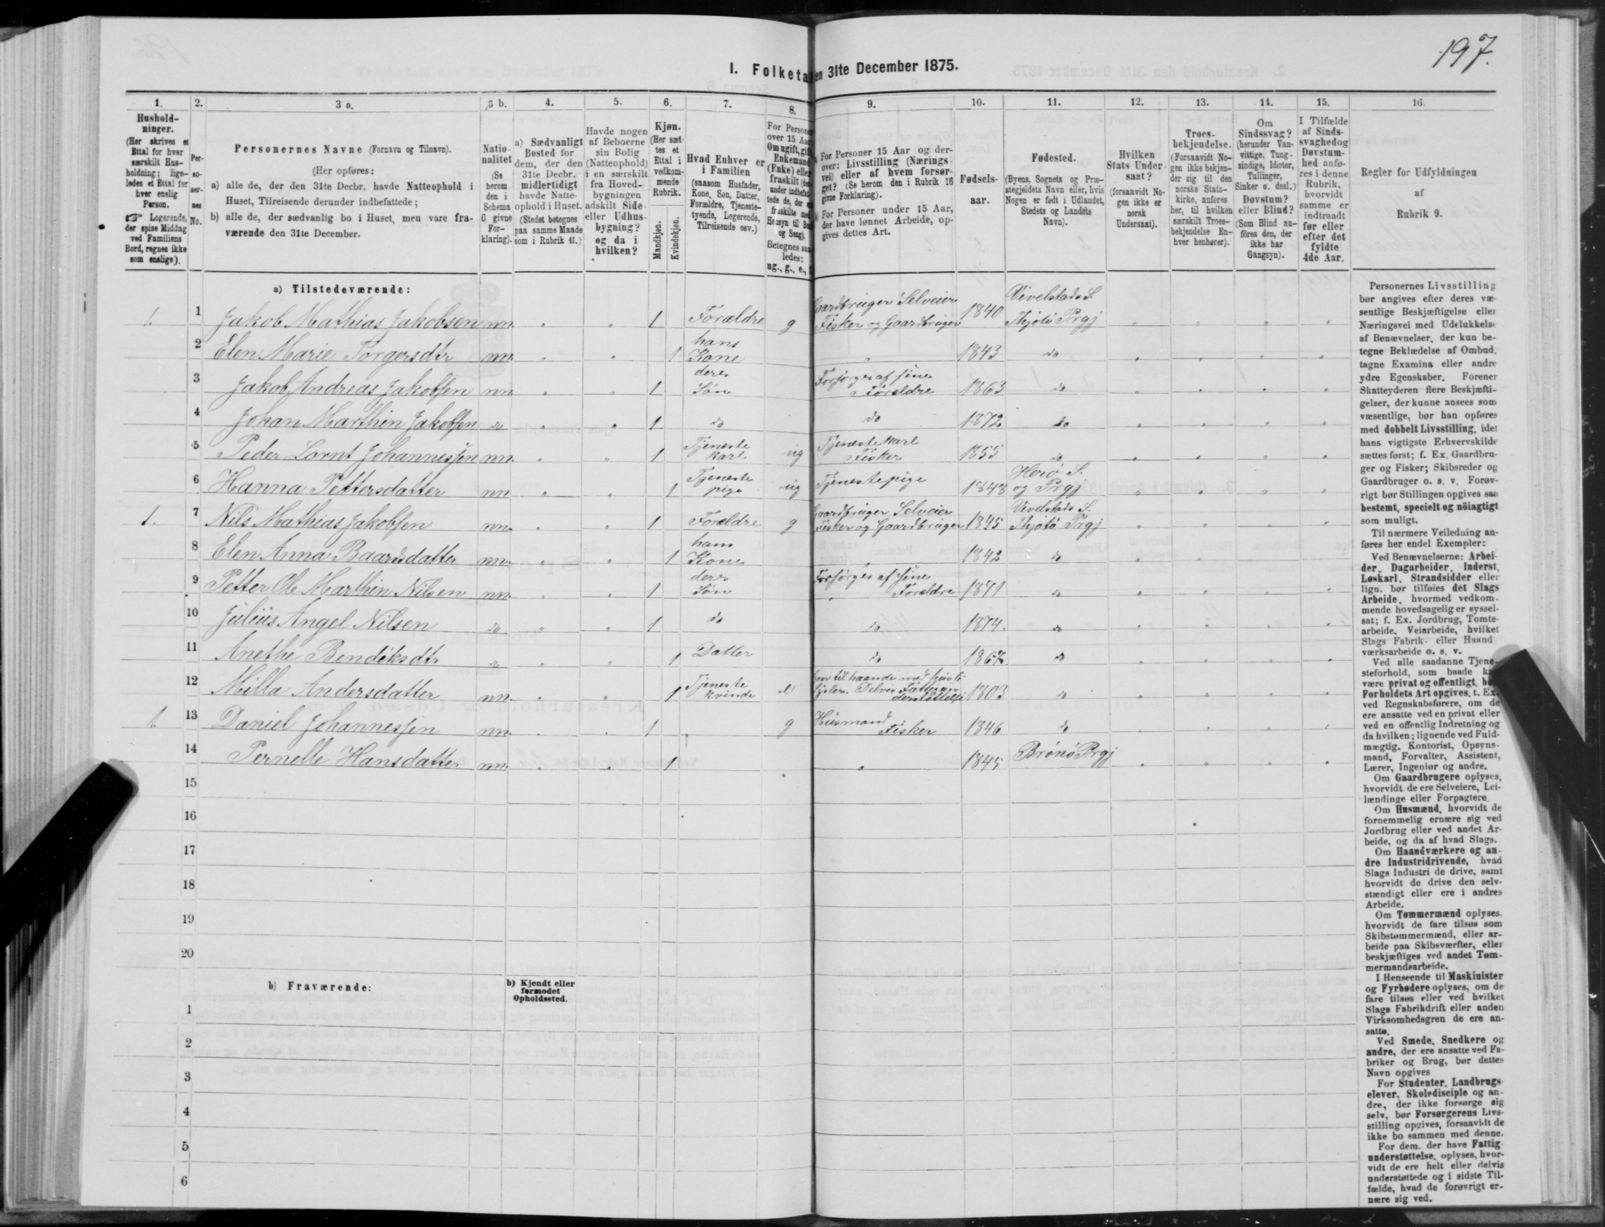 197.
I. Folketa en 31te December 1875.
1. 2. 3 a. 3 b. 4. 5. 6. 7. 8. 9. 10. 11. 12. 13. 14. 15. 16.
Hushold-
ninger.
(Her skrives et
Ettal for hver
særskilt Hus-
holdning; lige-
ledes et Ettal for
hver enslig
Person.
☞ Logerende,
der spise Middag
ved Familiens
Bord, regnes ikke
som enslige).
Per-
so-
ner-
nes
No.
Personernes Navne (Fornavn og Tilnavn).
(Her opføres:
a) alle de, der den 31te Decbr. havde Natteophold i
Huset, Tilreisende derunder indbefattede;
b) alle de, der sædvanlig bo i Huset, men vare fra-
værende den 31te December.
Natio-
nalitet
(Se
herom
den i
Schema
6 givne
For-
klaring).
a) Sædvanligt
Bosted for
dem, der den
31te Decbr.
midlertidigt
havde Natte-
ophold i Huset.
(Stedet betegnes
paa samme Maade
som i Rubrik 11.)
Havde nogen
af Beboerne
sin Bolig
(Natteophold)
i en særskilt
fra Hoved-
bygningen
adskilt Side-
eller Udhus-
bygning?
og da i
hvilken?
Kjøn.
(Her sæt-
tes et
Ettal i
vedkom-
mende
Rubrik.
Mandkjøn.
Kvindekjøn.
Hvad Enhver er
i Familien
(saasom Husfader,
Kone, Søn, Datter,
Forældre, Tjeneste-
tyende, Logerende,
Tilreisende osv.)
For Person
over 15 Aar
Om ugift, gift
Enkemand
(Enke) eller
fraskilt
Betegnes saa-
ledes:
ug., g., e., f
For Personer 15 Aar og der-
over: Livsstilling (Nærings-
vei) eller af hvem forsør-
get? (Se herom den i Rubrik 16
givne Forklaring).
For Personer under 15 Aar,
der have lønnet Arbeide, op-
gives dettes Art.
Fødsels-
aar.
Fødested.
(Byens, Sognets og Præ-
stegjeldets Navn eller, hvis
Nogen er født i Udlandet,
Stedets og Landets
Navn).
Hvilken
Stats Under-
saat?
(forsaavidt No-
gen ikke er
norsk
Undersaat).
Troes-
bekjendelse.
(Forsaavidt No-
gen ikke bekjen-
der sig til den
norske Stats-
kirke, anføres
her, til hvilken
særskilt Troes-
bekjendelse En-
hver henhører).
Om
Sindssvag?
(herunder Van-
vittige, Tung-
sindige, Idioter,
Tullinger,
Sinker o. desl.)
Døvstum?
eller Blind?
(Som Blind an-
føres den, der
ikke har
Gangsyn).
I Tilfælde
af Sinds-
svaghed og
Døvstum-
hed anfø-
res i denne
Rubrik,
hvorvidt
samme er
indtraadt
før eller
efter det
fyldte
4de Aar.
Regler for Udfyldningen
af
Rubrik 9.
a) Tilstedeværende:
1. 1 Jakob Mathias Jakobsen nn. 1 Forældre g Gaardbruger Selveier Fisker og Gaardbruger 1840 Vivelstads S. Thjøtø Prgj
2 Elen Marie Torgersdtr nn. 1 hans Kone 1843 do
3 Jakob Andreas Jakobsen nn. 1 deres Søn Forsørges af sine Forældre 1863 do
4 Johan Marthin Jakobsen do 1 do do 1872 do
5 Peder Lornt Johannessen nn. 1 Tjeneste karl ug Tjenestekarl Fisker 1855 do
6 Hanna Pettersdatter nn. 1 Tjeneste pige ug Tjenestepige 1843 Herø S. og Prgj
1. 7 Nils Mathias Jakobsen nn. 1 Forældre g Gaardbruger Selveier Fisker og Gaardbruger 1845 Vivelstads S. Thjøtø Prgj
8 Elen Anna Baardsdatter nn. 1 hans Kone 1842 do
9 Petter Ole Marthin Nilsen nn. 1 deres Søn Forsørges af sine Forældre 1871 do
10 Julius Angel Nilsen do 1 do do 1874. do
11 Anethe Bendiksdtr do 1 Datter do 1867 do
12 Milla Andersdatter nn. 1 Tjeneste kvinde e 1803 do
1. 13 Daniel Johannessen nn. 1 g Husmand Fisker 1846 do
14 Pernelle Hansdatter nn. 1 1845 Brønø Prgj
15
16
17
18
19
20
b) Fraværende:
b) Kjendt eller
formodet
Opholdssted.
1
2
3
4
5
6
Personernes Livsstilling
bør angives efter deres væ-
sentlige Beskjæftigelse eller
Næringsvei med Udelukkelse
af Benævnelser, der kun be-
tegne Beklædelse af Ombud,
tagne Examina eller andre
ydre Egenskaber. Forener
Skatteyderen flere Beskjæfti-
gelser, der kunne ansees som
væsentlige, bør han opføres
med dobbelt Livsstilling, idet
hans vigtigste Erhvervskilde
sættes først; f. Ex. Gaardbru-
ger og Fisker; Skibsreder og
Gaardbruger o. s. v. Forøv-
rigt bør Stillingen opgives saa
bestemt, specielt og nøiagtigt
som muligt.
Til nærmere Veiledning an-
føres her endel Exempler:
Ved Benævnelserne: Arbei-
der, Dagarbeider, Inderst,
Løskarl, Strandsidder eller
lign. bør tilføies det Slags
Arbeide, hvormed vedkom-
mende hovedsagelig er syssel-
sat; f. Ex. Jordbrug, Tomte-
arbeide, Veiarbeide, hvilket
Slags Fabrik- eller Haand-
værksarbeide o. s. v.
Ved alle saadanne Tjene-
stefor­hold, som baade kan
være privat og offentligt, bør
Forholdets Art opgives, t. Ex.
ved Regnskabsførere, om de
ere ansatte ved en privat eller
ved en offentlig Indretning og
da hvilken; lignende ved Fuld-
mægtig, Kontorist, Opsyns-
mand, Forvalter, Assistent,
Lærer, Ingeniør og andre.
Om Gaardbrugere oplyses,
hvorvidt de ere Selveiere, Lei-
lændinge eller Forpagtere.
Om Husmænd, hvorvidt de
fornemmelig ernære sig ved
Jordbrug eller ved andet Ar-
beide, og da af hvad Slags.
Om Haandværkere og an-
dre Industridrivende, hvad
Slags Industri de drive, samt
hvorvidt de drive den selv-
stændigt eller ere i andres
Arbeide.
Om Tømmermænd oplyses,
hvorvidt de fare tilsøs som
Skibstømmermænd, eller ar-
beide paa Skibsværfter, eller
beskjæftiges ved andet Tøm-
mermandsarbeide.
I Henseende til Maskinister
og Fyrbødere oplyses, om de
fare tilsøs eller ved hvilket
Slags Fabrikdrift eller anden
Virksomhedsgren de ere an-
satte.
Ved Smede, Snedkere og
andre, der ere ansatte ved Fa-
briker og Brug, bør dettes
Navn opgives
For Studenter, Landbrugs-
elever, Skoledisciple og an-
dre, der ikke forsørge sig
selv, bør Forsørgerens Livs-
stilling opgives, forsaavidt de
ikke bo sammen med denne.
For dem, der have Fattig-
understøttelse, oplyses, hvor-
vidt de ere helt eller delvis
understøttede og i sidste Til-
fælde, hvad de forøvrigt er-
nære sig ved.